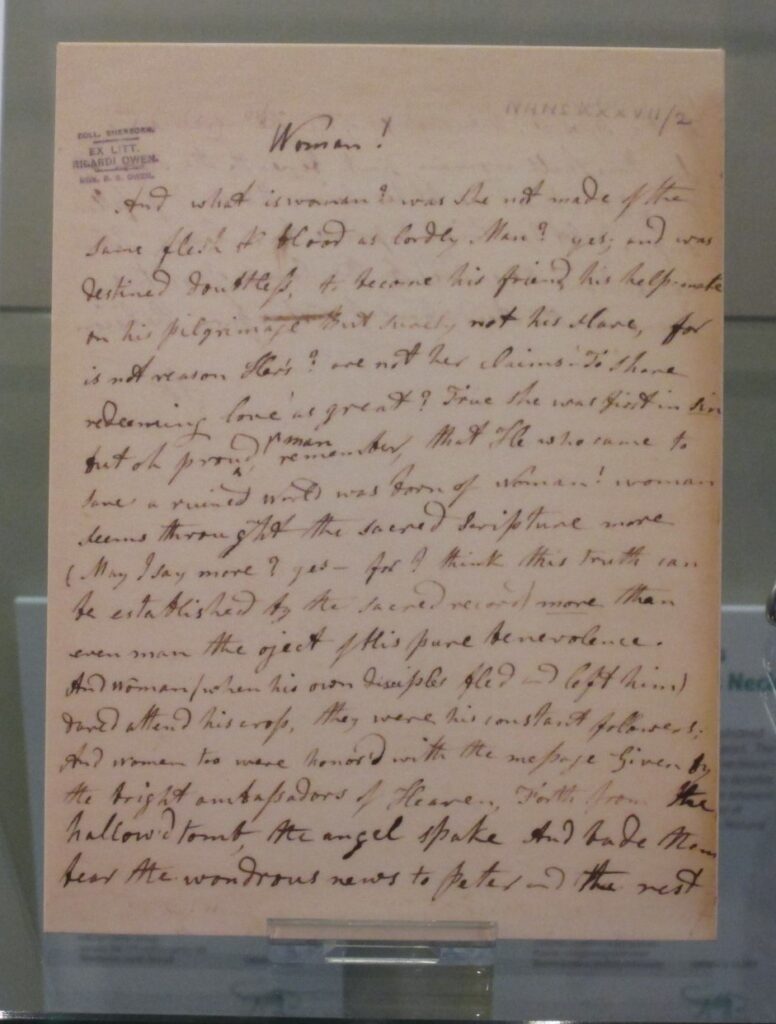 NANS XXXVII/2
COLL. SHERBORN.
EX LITT.
RICARDI OWEN.
REV. R. S. OWEN.
Woman!
And what is woman? was she not made of the
same flesh & blood as lordly Man? yes; and was
destined doubtless, to become his friend, his help-mate
on his pilgrimage But surely not his slave, for
is not reason Her's? are not her claims To share
redeeming love as great? True she was first in sin
but oh proud man remember, that He who came to
save a ruined world was born of woman! woman
seems throught the sacred Scripture more
(May I say more? yes — for I think this truth can
be established by the sacred record) more than
even man the oject of His pure benevolence.
And woman (when his own disciples fled and left him)
dared attend his cross, they were his constant followers;
And women too were honor'd with the message Given by
the bright ambassadors of Heaven, Forth from the
hallow'd tomb, the angel spake And bade them
bear the wondrous news to Peter and the rest